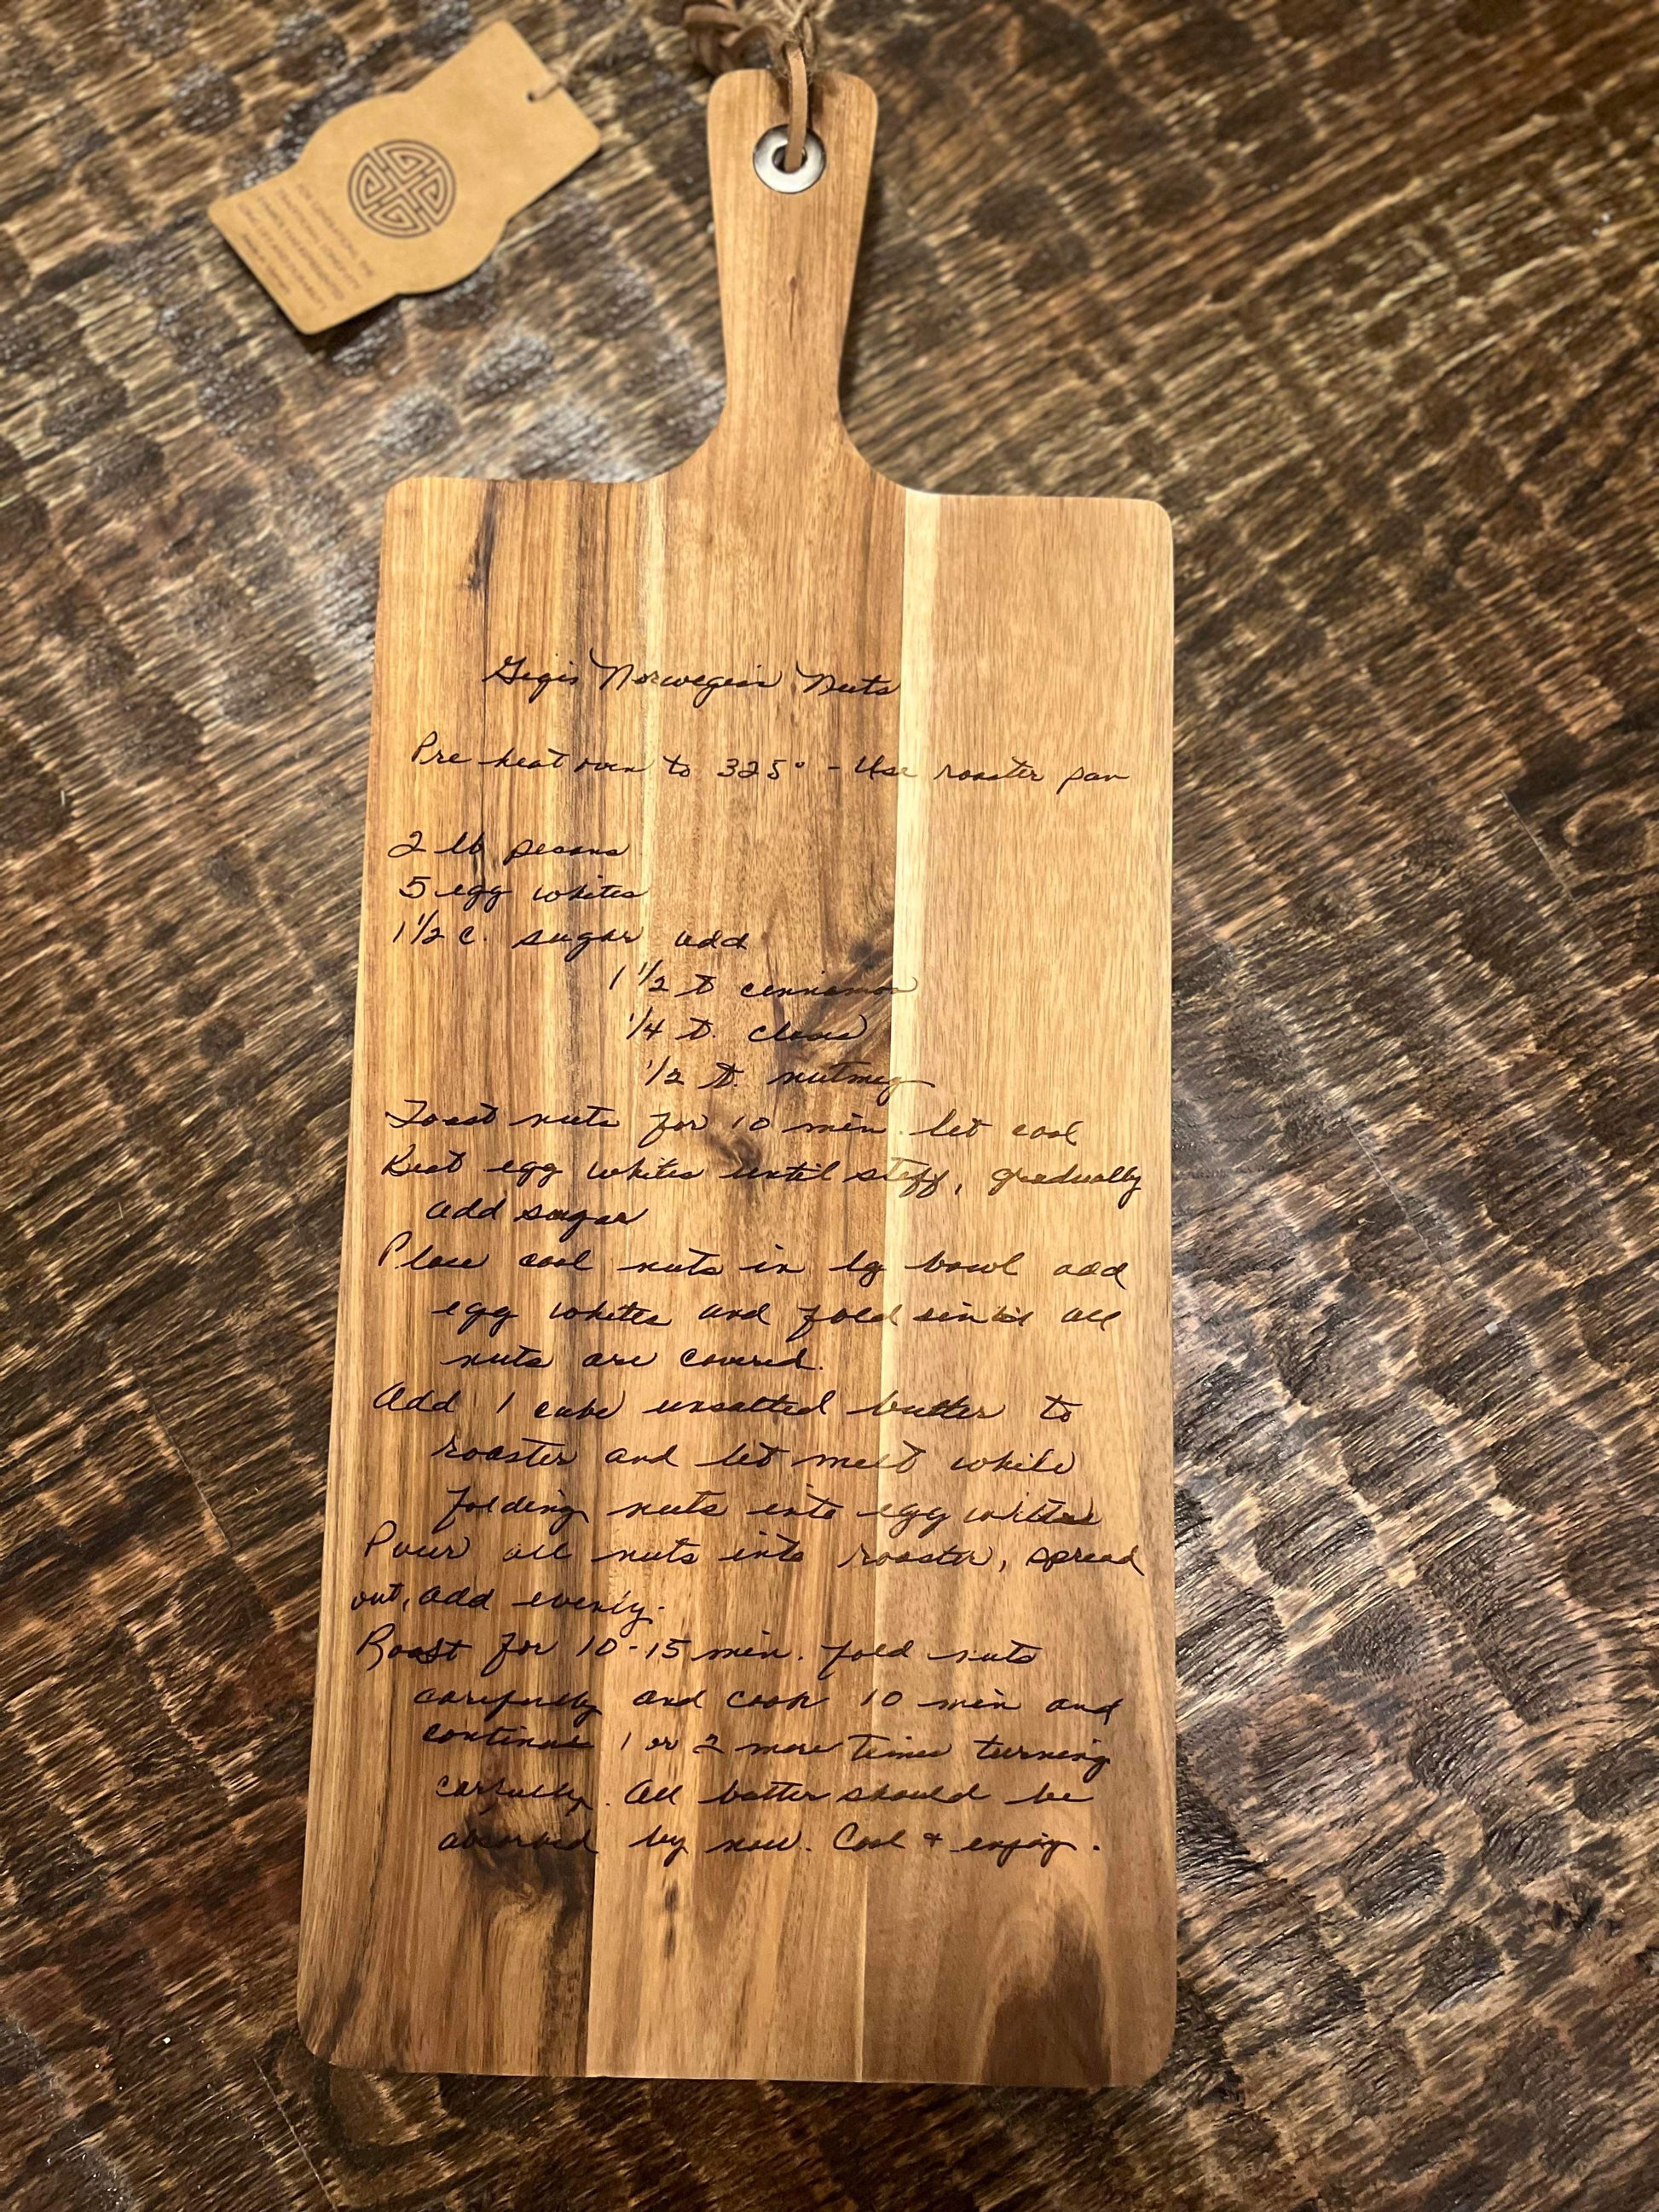 Gigis Norwegian Nuts
Pre heat oven to 325° - Use roaster pan
2 lb pecans
5 egg whites
1 1/2 c. sugar add
1 1/2 t cinnamon
1/4 t. cloves
1/2 t. nutmeg
Toast nuts for 10 min. let cool
Beat egg whites until stiff, gradually
add sugar
Place cool nuts in lg bowl add
egg whites and fold until all
nuts are covered.
Add 1 cube unsalted butter to
roaster and let melt while
folding nuts into egg whites
Pour all nuts into roaster, spread
out, add evenly.
Roast for 10-15 min. fold nuts
carefully and cook 10 min and
continue 1 or 2 more times turning
carfully. All butter should be
absorbed by now. Cool + enjoy.